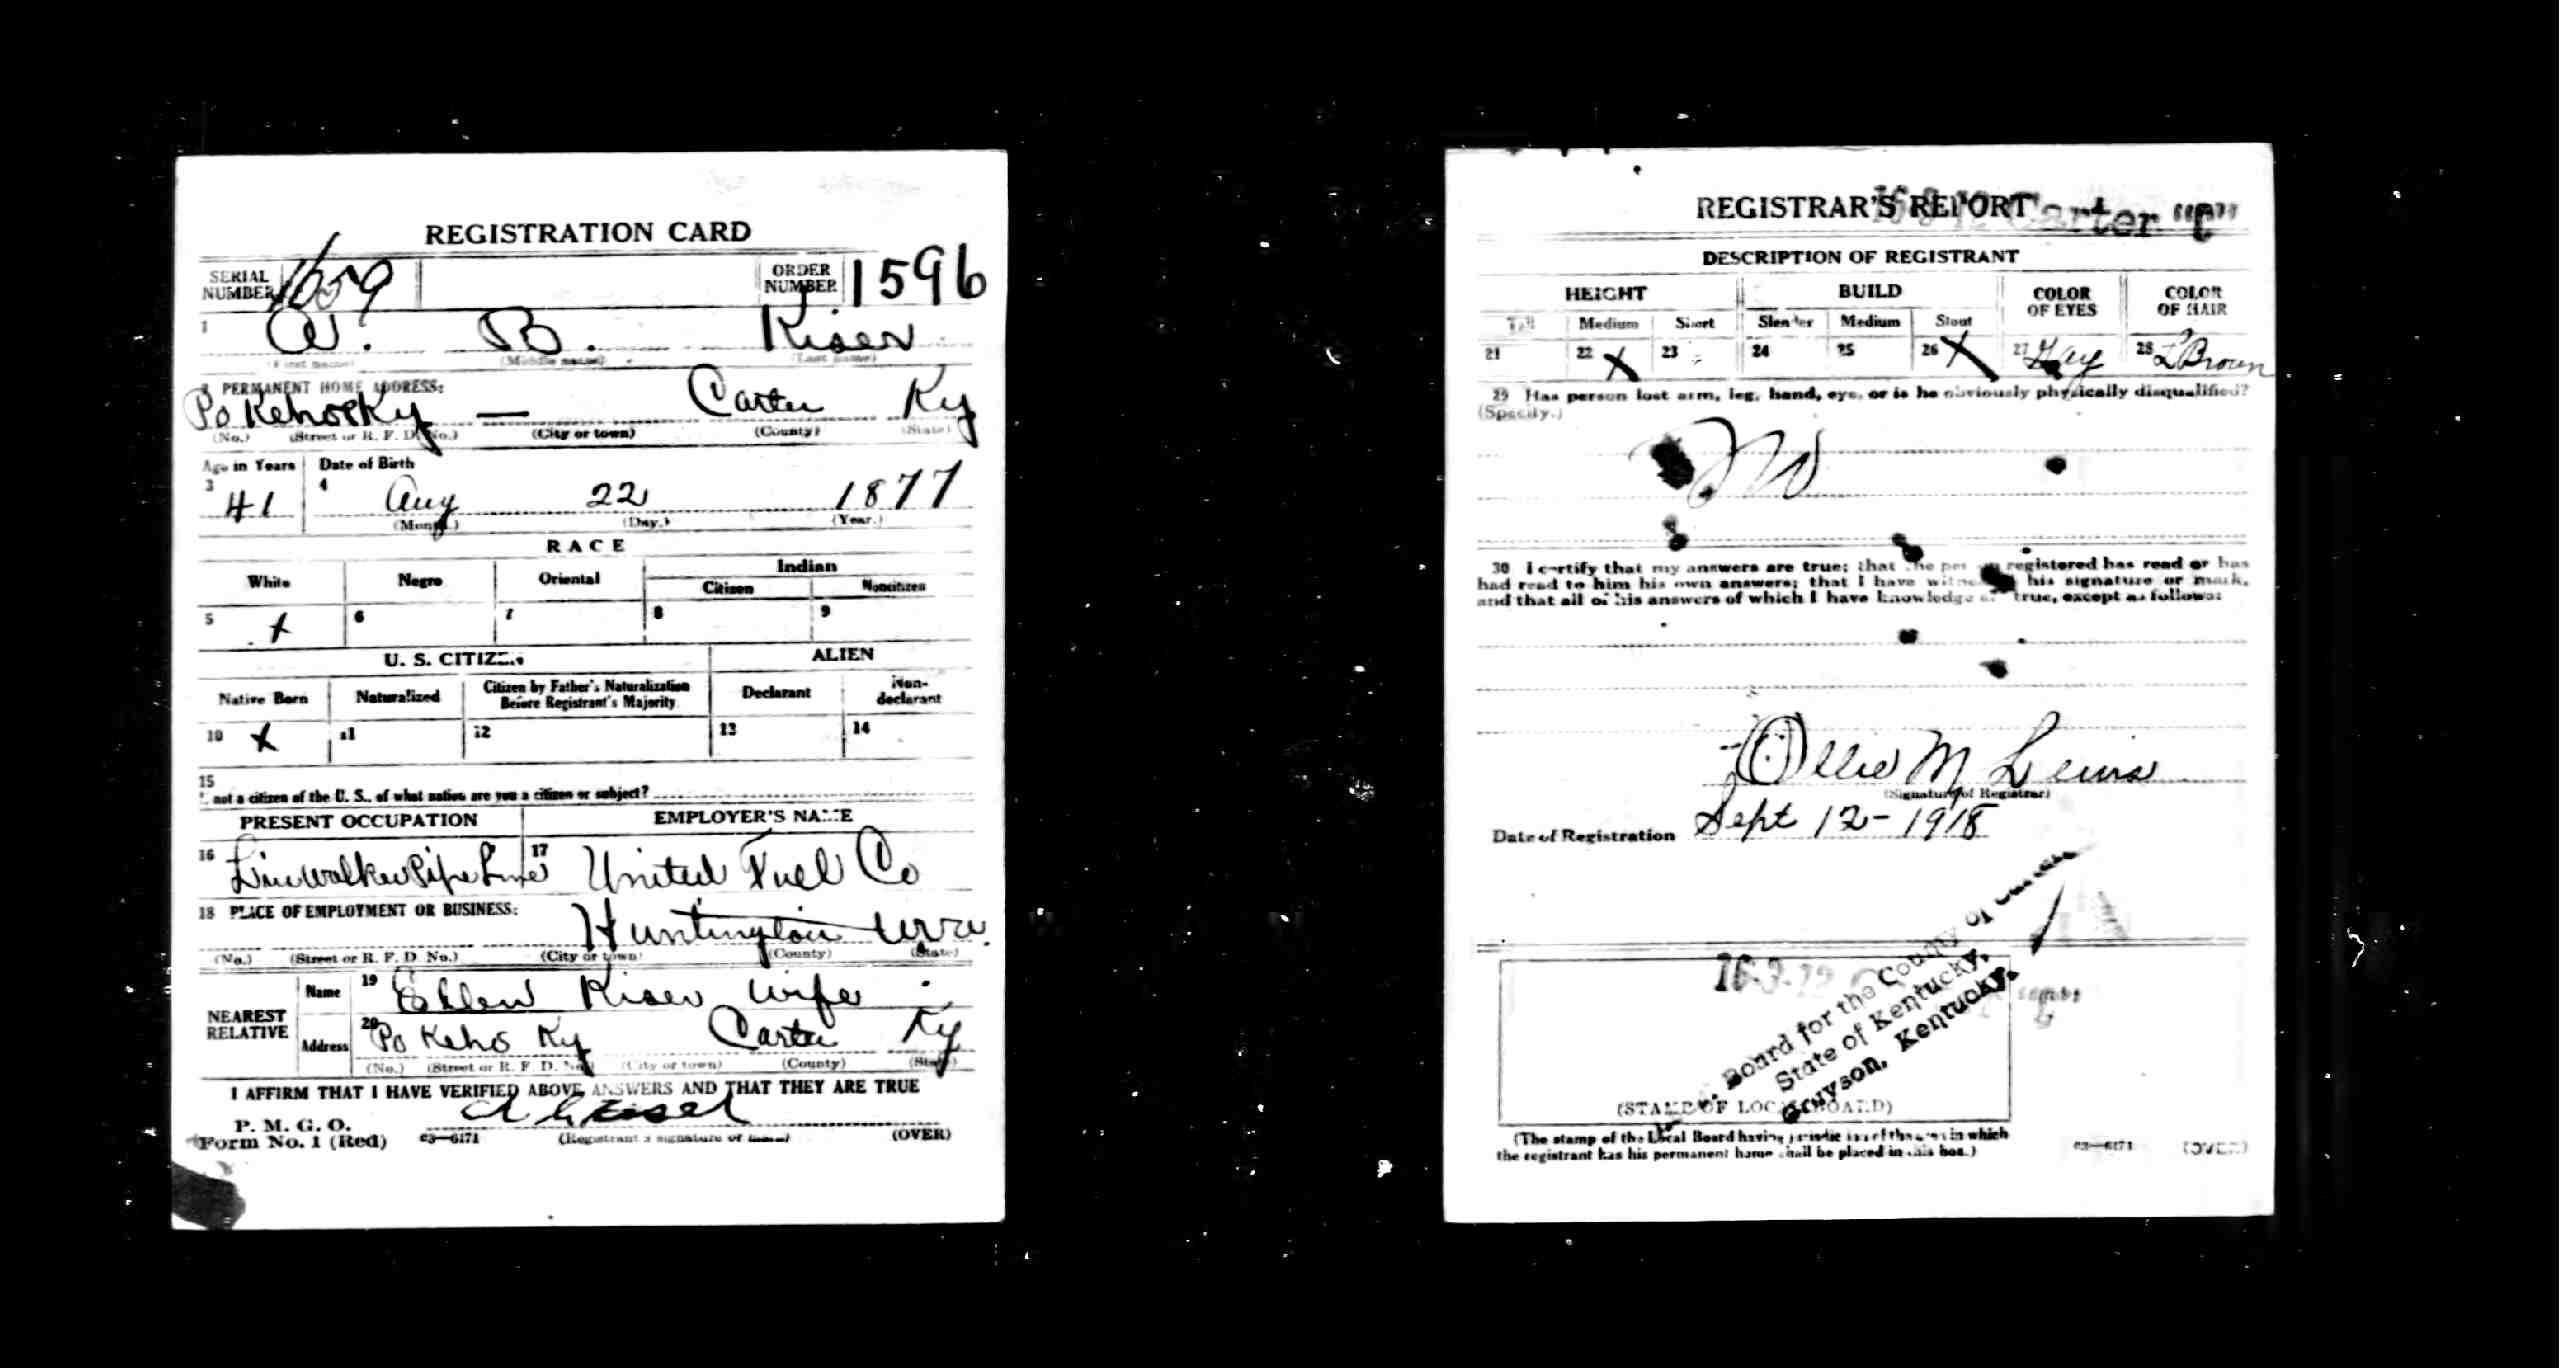 REGISTRATION CARD
SERIAL NUMBER 1659
ORDER NUMBER 1596
1 A. B. Kiser
(First name) (Middle name) (Last name)
2 PERMANENT HOME ADDRESS:
Po Kehoe Ky — Carter Ky
(No.) (Street or R. F. D. No.) (City or town) (County) (State)
Age in Years Date of Birth
3 41 4 Aug 22 1877
(Month.) (Day.) (Year.)
RACE
White Negro Oriental Indian
Citizen Noncitizen
5 X 6 7 8 9
U. S. CITIZEN ALIEN
Native Born Naturalized Citizen by Father's Naturalization Before Registrant's Majority Declarant Non-declarant
10 X 11 12 13 14
15
If not a citizen of the U. S., of what nation are you a citizen or subject?
PRESENT OCCUPATION EMPLOYER'S NAME
16 Line Walker Pipe Line 17 United Fuel Co
18 PLACE OF EMPLOYMENT OR BUSINESS:
Huntington W va
(No.) (Street or R. F. D. No.) (City or town) (County) (State)
NEAREST RELATIVE
Name 19 Kiser wife
Address 20 Po Keho Ky Carter Ky
(No.) (Street or R. F. D. No.) (City or town) (County) (State)
I AFFIRM THAT I HAVE VERIFIED ABOVE ANSWERS AND THAT THEY ARE TRUE
P. M. G. O.
Form No. 1 (Red) 03—6171 (Registrant's signature or mark) (OVER)
REGISTRAR'S REPORT
Carter "C"
DESCRIPTION OF REGISTRANT
HEIGHT BUILD COLOR OF EYES COLOR OF HAIR
Tall Medium Short Slender Medium Stout
21 22 X 23 24 25 26 X 27 Gray 28 L Brown
29 Has person lost arm, leg, hand, eye, or is he obviously physically disqualified?
(Specify.)
No
30 I certify that my answers are true; that the person registered has read or has
had read to him his own answers; that I have witnessed his signature or mark,
and that all of his answers of which I have knowledge are true, except as follows:
Ollie M Lewis
(Signature of Registrar)
Date of Registration Sept 12-1918
Board for the County of
State of Kentucky,
Grayson, Kentucky.
(STAMP OF LOCAL BOARD)
(The stamp of the Local Board having jurisdiction of the area in which
the registrant has his permanent home shall be placed in this box.)
03—6171 (OVER)